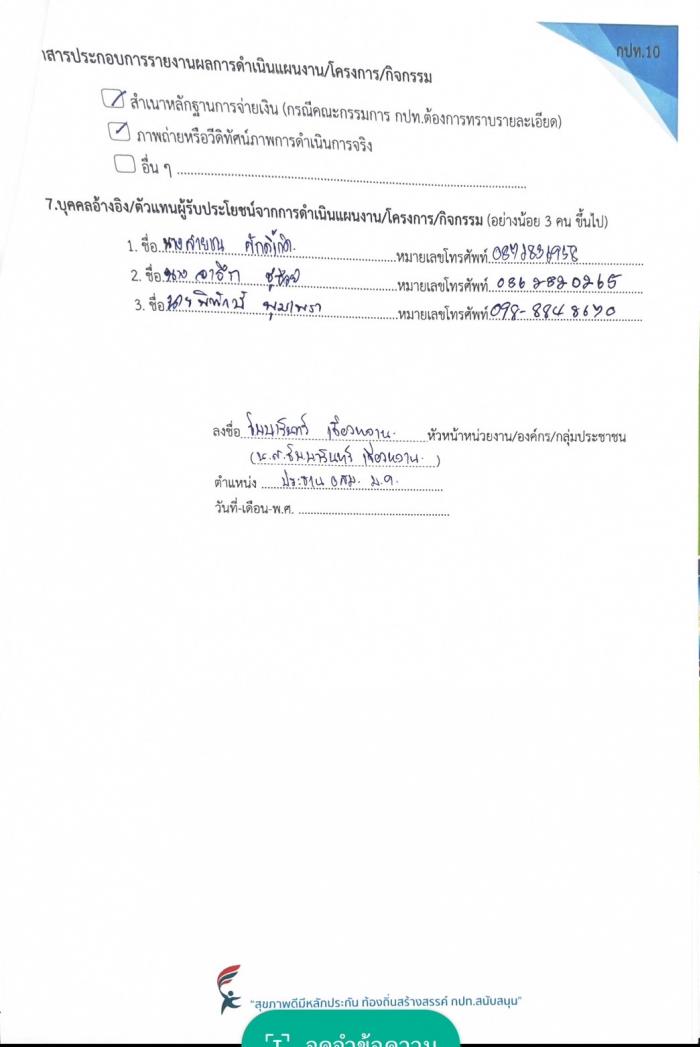 กปท.10
าสารประกอบการรายงานผลการดำเนินแผนงาน/โครงการ/กิจกรรม
สำเนาหลักฐานการจ่ายเงิน (กรณีคณะกรรมการ กปท.ต้องการทราบรายละเอียด)
ภาพถ่ายหรือวีดิทัศน์ภาพการดำเนินการจริง
อื่น ๆ
7.บุคคลอ้างอิง/ตัวแทนผู้รับประโยชน์จากการดำเนินแผนงาน/โครงการ/กิจกรรม (อย่างน้อย 3 คน ขึ้นไป)
1. ชื่อ นางสายชน หมายเลขโทรศัพท์
2. ชื่อ นาง หมายเลขโทรศัพท์ 086 2820265
3. ชื่อ นายพิทักษ์ พุมเพรา หมายเลขโทรศัพท์ 098-884 8670
ลงชื่อ หัวหน้าหน่วยงาน/องค์กร/กลุ่มประชาชน
(น.ส. )
ตำแหน่ง ประธาน อสม. ม.๑.
วันที่-เดือน-พ.ศ.
"สุขภาพดีมีหลักประกัน ท้องถิ่นสร้างสรรค์ กปท.สนับสนุน"